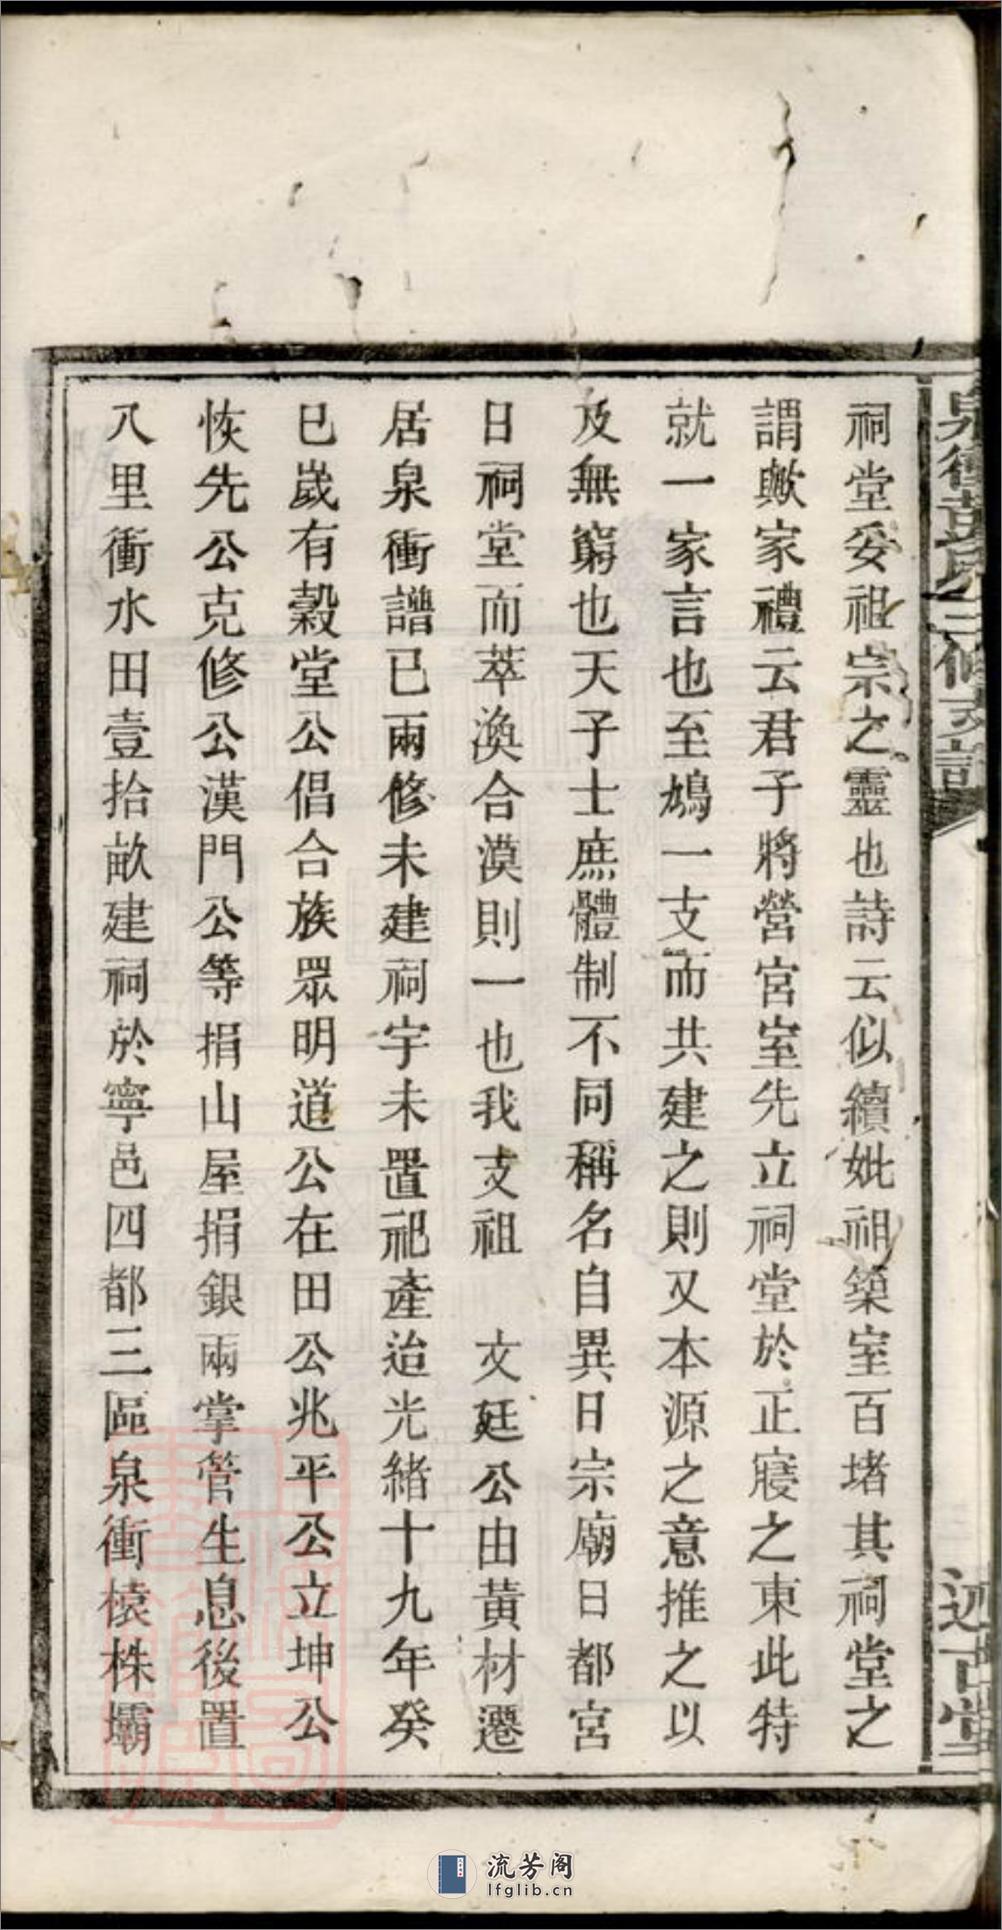 泉衝黃氏三修支譜
述古堂
祠堂妥祖宗之靈也詩云似續妣祖築室百堵其祠堂之
謂歟家禮云君子將營宮室先立祠堂於正寢之東此特
就一家言也至鳩一支而共建之則又本源之意推之以
及無窮也天子士庶體制不同稱名自異日宗廟日都宮
日祠堂而萃渙合漠則一也我支祖　文廷公由黃材遷
居泉衝譜已兩修未建祠宇未置祀產迨光緒十九年癸
巳歲有穀堂公倡合族眾明道公在田公兆平公立坤公
恢先公克修公漢門公等捐山屋捐銀兩掌管生息後置
八里衝水田壹拾畝建祠於寧邑四都三區泉衝榬株壩
流芳阁
lfglib.cn